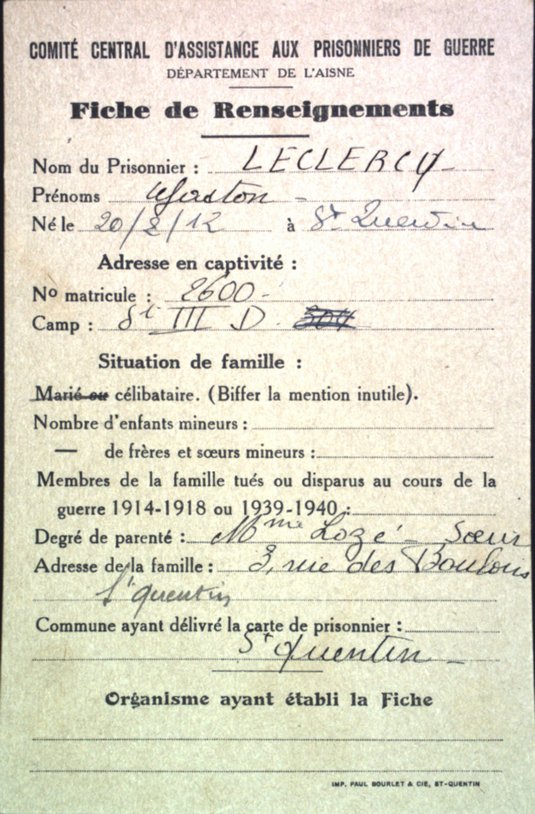 COMITÉ CENTRAL D'ASSISTANCE AUX PRISONNIERS DE GUERRE
DÉPARTEMENT DE L'AISNE
Fiche de Renseignements
Nom du Prisonnier : LECLERCQ
Prénoms Gaston
Né le 20/2/12 à St Quentin
Adresse en captivité :
No matricule : 2600
Camp : St III D
Situation de famille :
Marié ou célibataire. (Biffer la mention inutile).
Nombre d'enfants mineurs :
— de frères et sœurs mineurs :
Membres de la famille tués ou disparus au cours de la
guerre 1914-1918 ou 1939-1940 :
Degré de parenté : Mme Lozé - Sœur
Adresse de la famille : 3, rue des Boulons
St quentin
Commune ayant délivré la carte de prisonnier :
St quentin
Organisme ayant établi la Fiche
IMP. PAUL BOURLET & CIE, ST-QUENTIN